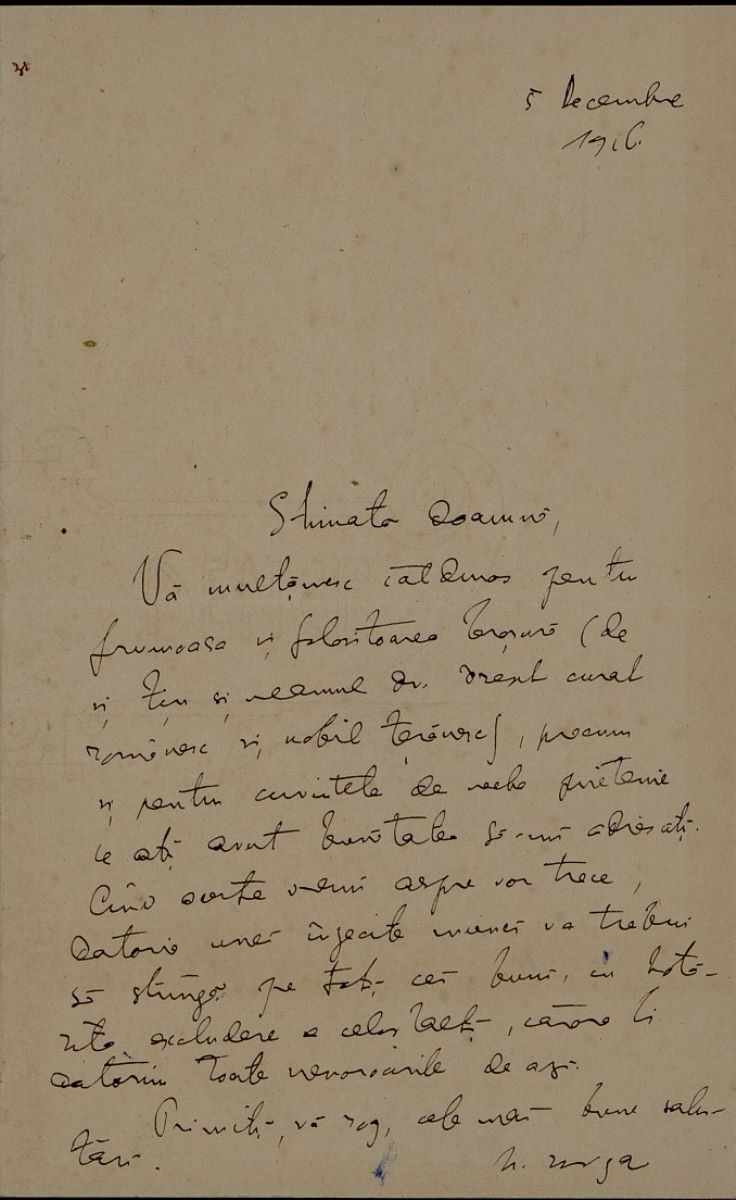 5 Decembre
1916.
Stimată Doamnă,
Vă mulțămesc călduros pentru
frumoasa și folositoarea broșură (de
și țin și neamul Dv. drept curat
românesc și nobil țerănesc), precum
și pentru cuvintele de veche prietenie
ce ați avut bunătatea să-mi adresați.
Cînd aceste vremi aspre vor trece,
datoria unei înzecite munci va trebui
să strîngă pe toți cei buni, cu hotă-
rîta excludere a celorlalți, cărora li
datorim toate nenorocirile de azi.
Primiți, vă rog, cele mai bune salu-
tări.
N. Iorga